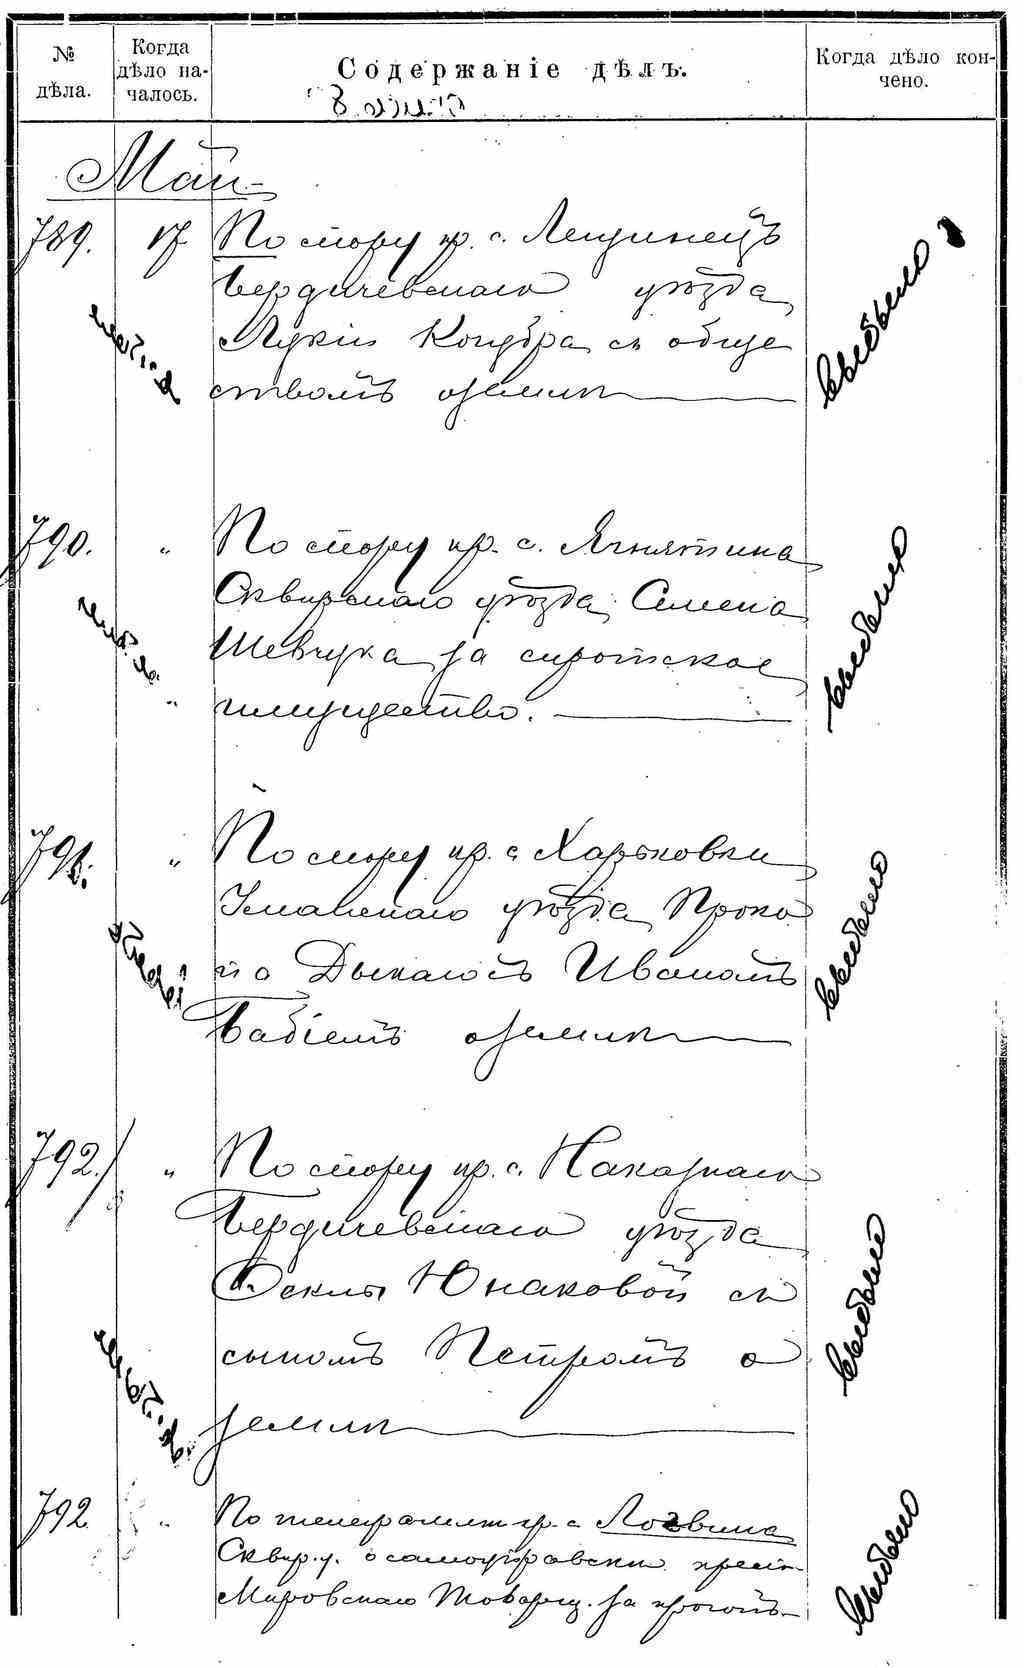 № дѣла.
Когда дѣло на-чалось.
Содержаніе дѣлъ.
Когда дѣло кон-чено.
Май
789. 17 По спору кр. с. Лещинецъ
Бердичевскаго уѣзда
Лукіи Коцубра съ обще
ствомъ о землѣ
выбыло
790. " По спору кр. с. Ягнятина
Сквирскаго уѣзда Семена
Шевчука за сиротское
" имущество.
выбыло
791. " По спору кр. с. Харьковки
Уманскаго уѣзда Проко
па Дыкаго съ Иваномъ
Бабіемъ о землѣ
выбыло
792. " По спору кр. с. Наказнаго
Бердичевскаго уѣзда
Феклы Юнаковой съ
сыномъ Петромъ о
землѣ
выбыло
792. " По телеграммѣ кр. с. Логвина
Сквир. у. о самоуправствѣ крест.
Мировскаго Товарищ. за прогонъ
выбыло